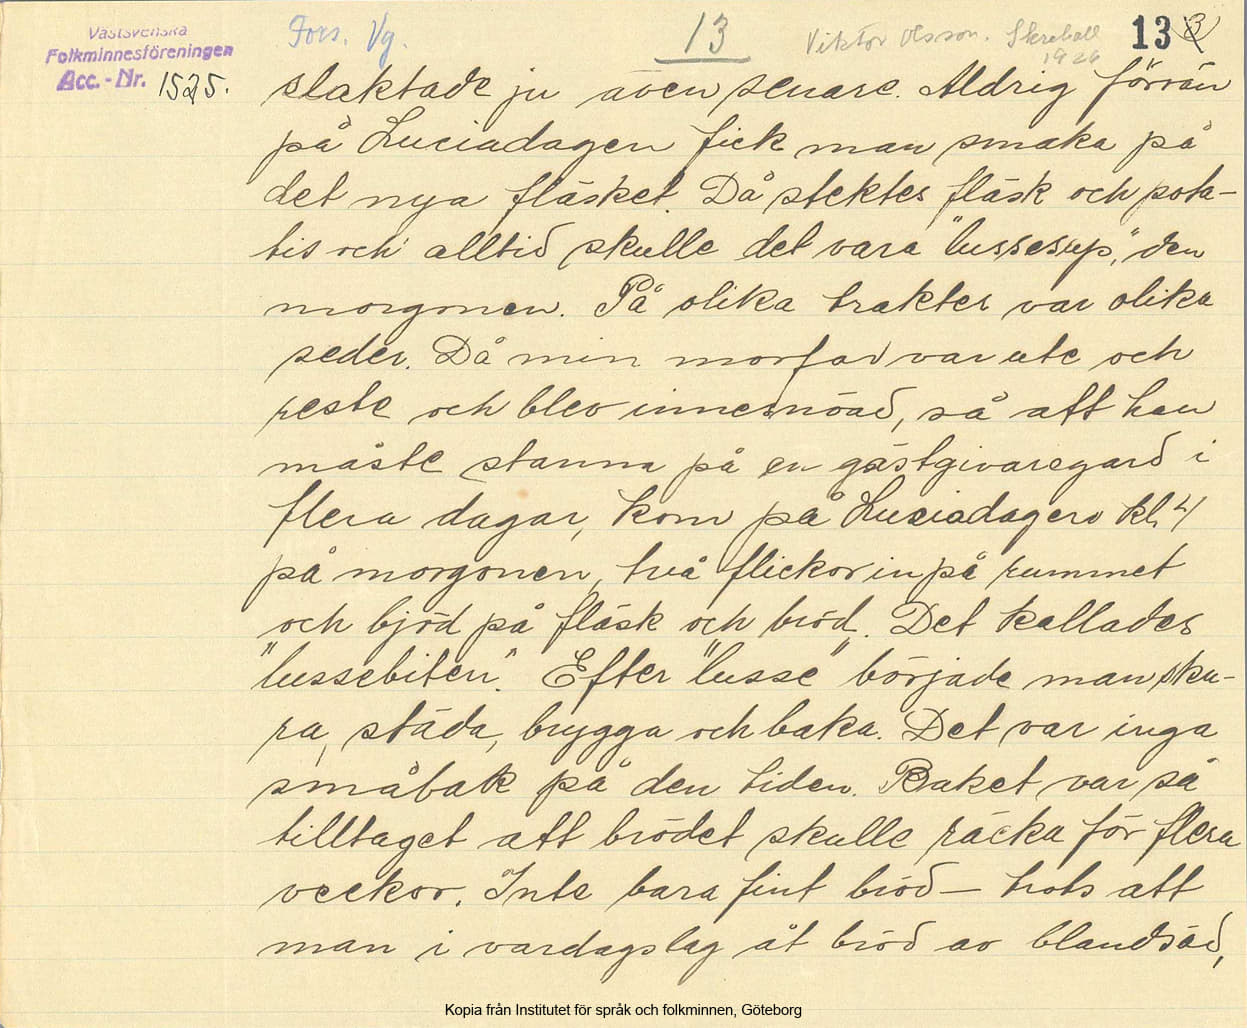 Västsvenska
Folkminnesföreningen
Acc.-Nr. 1525.
Fors. Vg.
13
Viktor Olsson.
1926
13
slaktade ju även senare. Aldrig förrän
på Luciadagen fick man smaka på
det nya fläsket. Då stektes fläsk och pota-
tis och alltid skulle det vara "lussesup", den
morgonen. På olika trakter var olika
seder. Då min morfar var ute och
reste och blev innesnöad, så att han
måste stanna på en gästgivaregard i
flera dagar, kom på Luciadagen kl. 4
på morgonen, två flickor in på rummet
och bjöd på fläsk och bröd. Det kallades
"lussebiten". Efter "lusse" började man sku-
ra, städa, brygga och baka. Det var inga
småbak på den tiden. Baket var så
tilltaget att brödet skulle räcka för flera
veckor. Inte bara fint bröd – trots att
man i vardagslag åt bröd av blandsäd,
Kopia från Institutet för språk och folkminnen, Göteborg